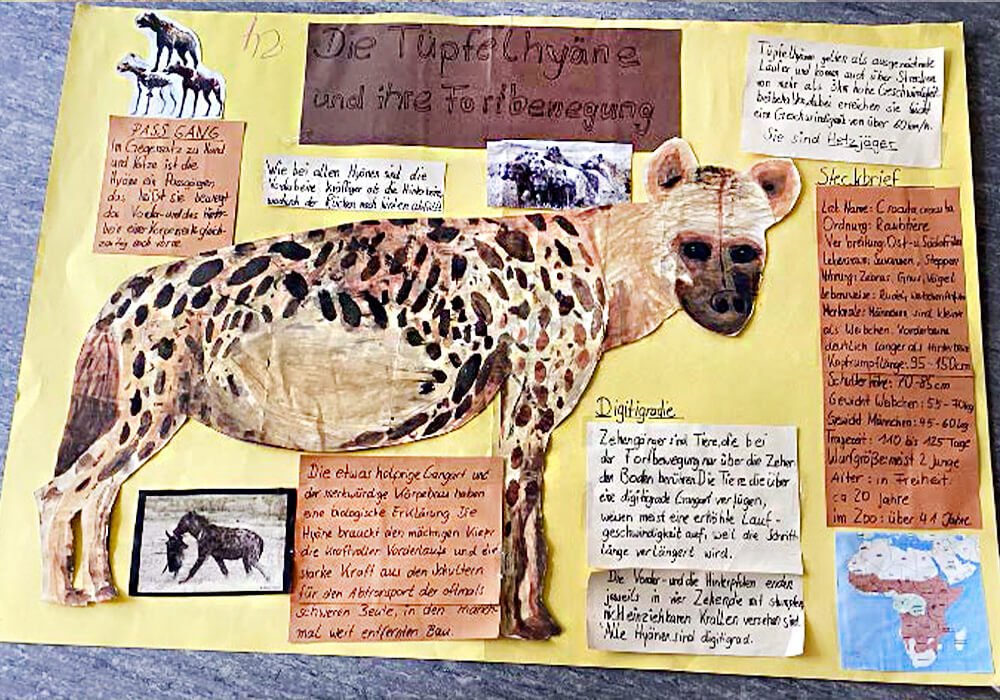 Die Tüpfelhyäne
und ihre Fortbewegung
PASS GANG
Im Gegensatz zu Hund
und Katze ist die
Hyäne ein Passgänger,
das heißt sie bewegt
das Vorder- und das Hinter-
bein einer Körperseite gleich-
zeitig nach vorne.
Wie bei allen Hyänen sind die
Vorderbeine kräftiger als die Hinterbeine,
wodurch der Rücken nach hinten abfällt.
Tüpfelhyänen gelten als ausgezeichnete
Läufer und können auch über Strecken
von mehr als 3km hohe Geschwindigkeit
beibehalten, dabei erreichen sie leicht
eine Geschwindigkeit von über 60 km/h.
Sie sind Hetzjäger
Steckbrief
Lat. Name: Crocuta crocuta
Ordnung: Raubtiere
Verbreitung: Ost- u. Südafrika
Lebensraum: Savannen, Steppen
Nahrung: Zebras, Gnus, Vögel
Lebensweise: Rudel,
Merkmale: Männchen sind kleiner
als Weibchen. Vorderbeine
deutlich länger als Hinterbeine
Kopfrumpflänge: 95-150cm
Schulterhöhe: 70-85cm
Gewicht Weibchen: 55-70kg
Gewicht Männchen: 45-60kg
Tragezeit: 110 bis 125 Tage
Wurfgröße: meist 2 Junge
Alter: in Freiheit:
ca 20 Jahre
im Zoo: über 41 Jahre
Digitigradie
Zehengänger sind Tiere, die bei
der Fortbewegung nur über die Zehen
den Boden berühren. Die Tiere die über
eine digitigrade Gangart verfügen,
weisen meist eine erhöhte Lauf-
geschwindigkeit auf, weil die Schritt-
länge verlängert wird.
Die Vorder- und die Hinterpfoten enden
jeweils in vier Zehen die mit stumpfen
nicht einziehbaren Krallen versehen sind.
Alle Hyänen sind digitigrad.
Die etwas holprige Gangart und
der merkwürdige Körperbau haben
eine biologische Erklärung. Die
Hyäne braucht den mächtigen Kiefer
die kraftvollen Vorderläufe und die
starke Kraft aus den Schultern
für den Abtransport der oftmals
schweren Beute, in den manch-
mal weit entfernten Bau.